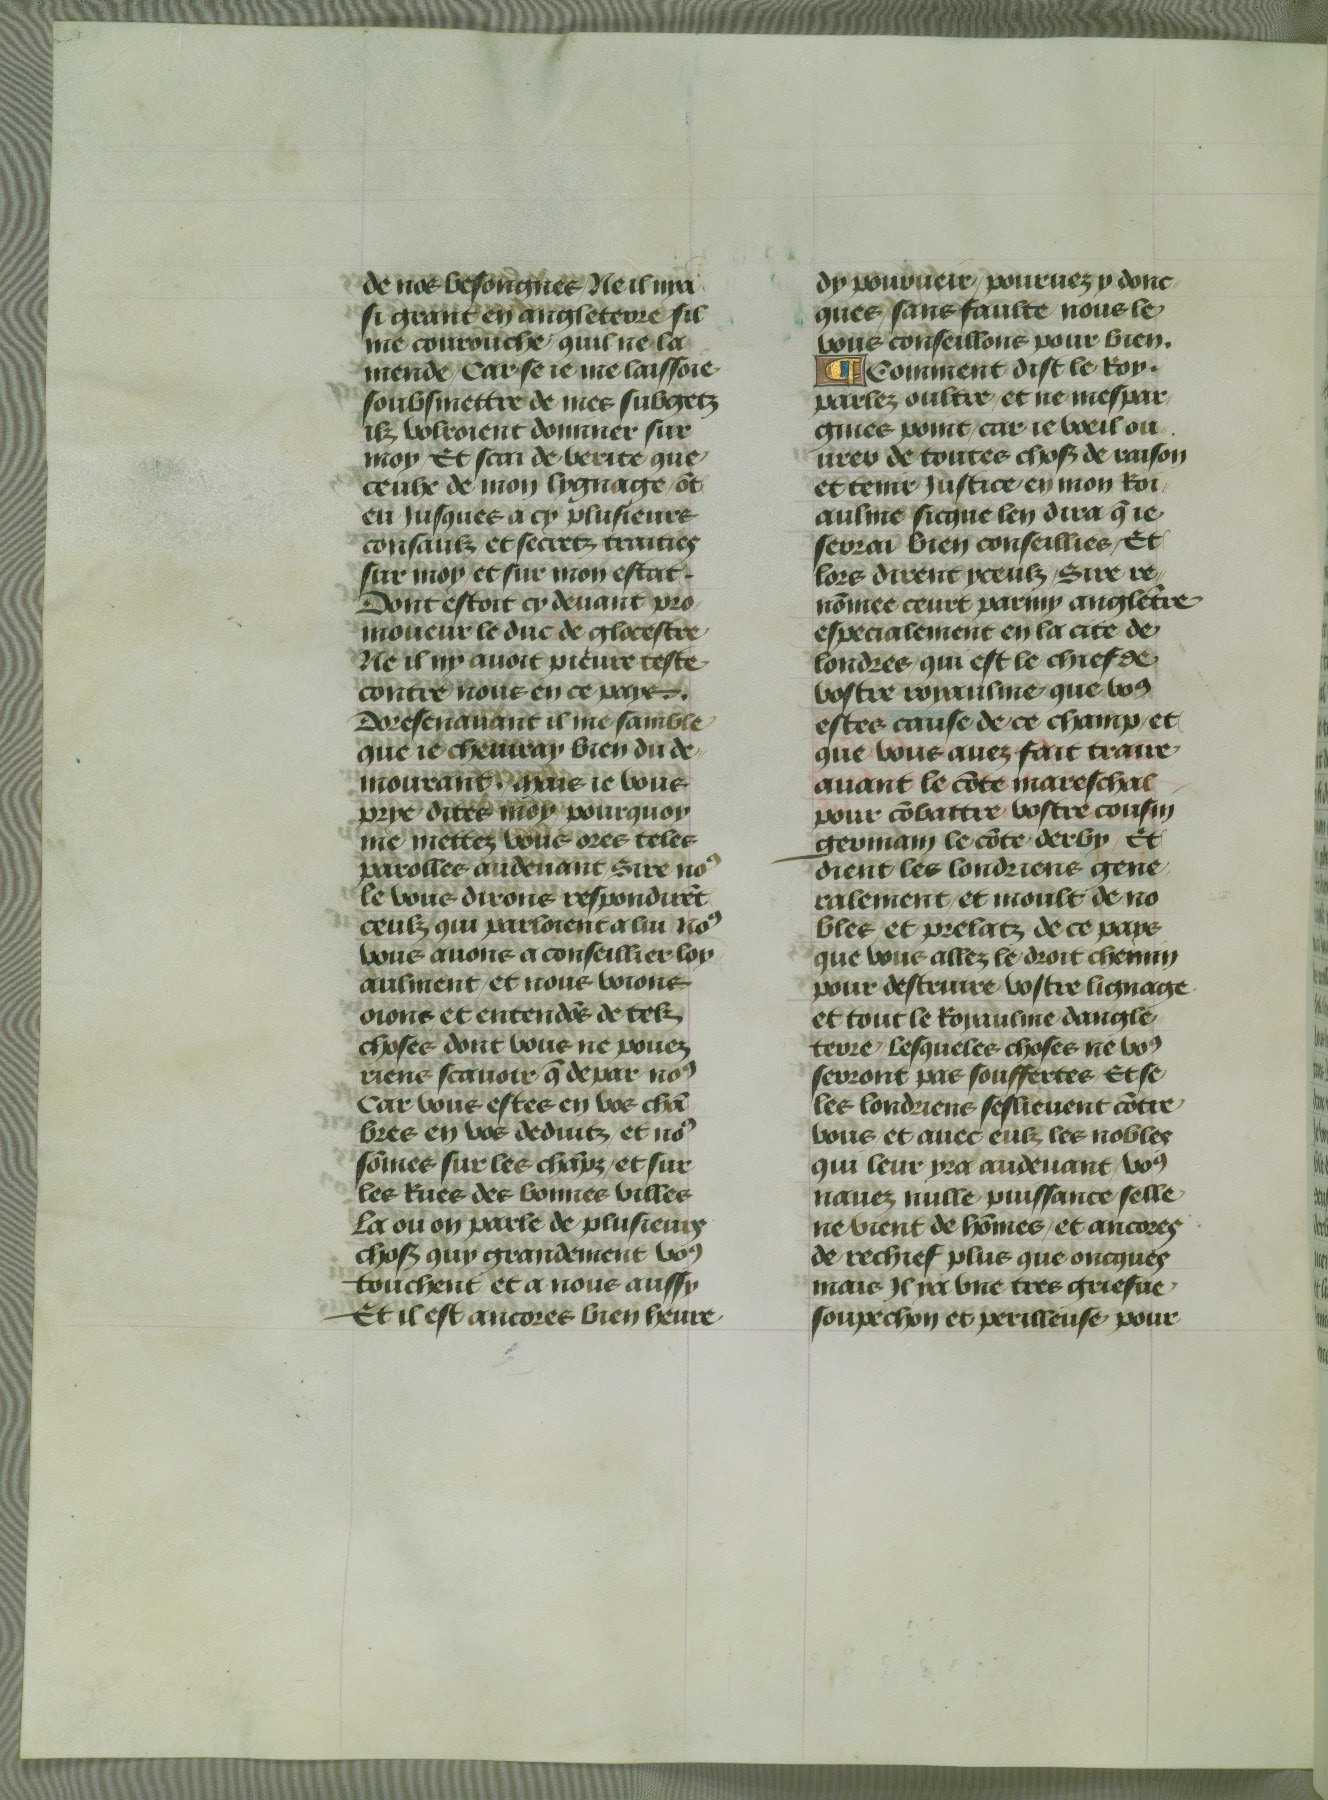 de nos besongnes / Ne il nya
si grant en angleterre sil
me courouche / quil ne la
mende / Car se ie me laissoie
soubsmettre de mes subgetz
ilz volroient dominer sur
moy / Et scai de verite que
ceulx de mon lygnage / ōt
eu Jusques a cy plusieurs
consaulz et secretz traities
sur moy et sur mon estat .
Dont estoit cy deuant pro
moueur le duc de glocestre
Ne il ny auoit pieure teste
contre nous en ce pays .
Doresenauant il me samble
que ie cheuiray bien du de
mourant . Mais ie vous
prye dites moy pourquoy
me mettez vous ores teles
parolles audeuant Sire noꝰ
le vous dirons respondirēt
ceulz qui parloient a lui Noꝰ
vous auons a conseillier loy
aulment / et nous voions
oions et entendōs de telz
choses dont vous ne pouez
riens scauoir q̄ de par noꝰ
Car vous estes en vos chā
bres en vos deduitz / et noꝰ
sōmes sur les chāpz / et sur
les Rues des bonnes villes
La ou on parle de plusieurs
choſȝ quy grandement voꝰ
touchent et a nous aussy
Et il est ancores bien heure
dy pourueir / pouruez y donc
ques / sans faulte nous le
vous conseillons pour bien .
¶ Comment dist le Roy .
parlez oultre / et ne mespar
gnies point / car ie voeil ou
urer de toutes choſȝ de raison
et tenir Justice en mon Roi
aulme sicque len dira q̄ ie
serrai bien conseillies / Et
lors dirent yceulz / Sire re
nōmee ceurt parmy anglet̄re
especialement en la cite de
londres / qui est le chief de
vostre royaulme que voꝰ
estes cause de ce champ / et
que vous auez fait traire
auant le cōte mareschal
pour cōbattre vostre cousin
germain le cōte derby / Et
dient les londriens gene
ralement / et moult de no
bles et prelatz de ce pays
que vous allez le droit chemin
pour destruire vostre lignage
et tout le Royaulme dangle
terre / Lesqueles choses ne voꝰ
serront pas souffertes Et se
les londriens seslieuent cōtre
vous et auec eulz les nobles
qui leur yra audeuant / voꝰ
nauez nulle puissance selle
ne vient de hōmes / et ancores
de rechief plus que oncques
mais Jl ya vne tres griefue
soupechon et perilleuse pour